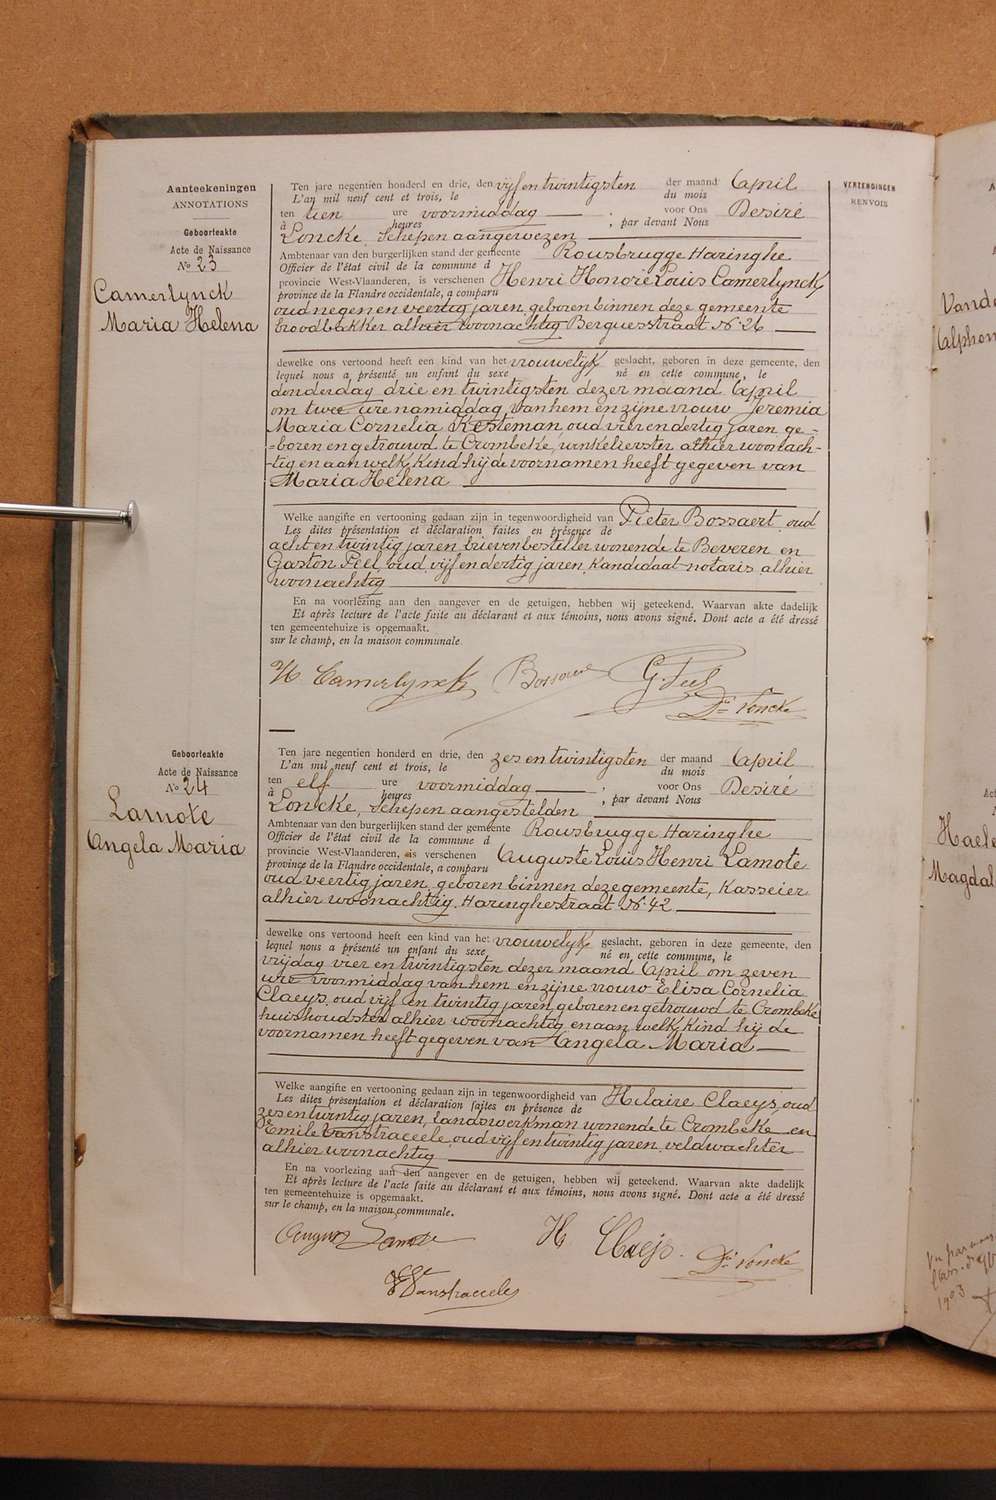 Aanteekeningen
ANNOTATIONS
Geboorteakte
Acte de Naissance
No 23
Camerlynck
Maria Helena
Ten jare negentien honderd en drie, den vijf en twintigsten der maand April
L'an mil neuf cent et trois, le du mois
ten tien ure voormiddag , voor Ons Desiré
à heures , par devant Nous
Loncke, Schepen aangewezen
Ambtenaar van den burgerlijken stand der gemeente Rousbrugge Haringhe
Officier de l'état civil de la commune d
provincie West-Vlaanderen, is verschenen Henri Honoré Louis Camerlynck
province de la Flandre occidentale, a comparu
oud negen en veertig jaren geboren binnen deze gemeente
broodbakker alhier woonachtig Berguesstraat No 26
dewelke ons vertoond heeft een kind van het vrouwelijk geslacht, geboren in deze gemeente, den
lequel nous a présenté un enfant du sexe né en cette commune, le
donderdag drie en twintigsten dezer maand April
om twee ure namiddag, van hem en zijne vrouw Jeremia
Maria Cornelia Kesteman, oud vier en dertig jaren ge-
=boren en getrouwd te Crombeke, winkelierster alhier woonach-
-tig en aan welk kind hij de voornamen heeft gegeven van
Maria Helena
Welke aangifte en vertooning gedaan zijn in tegenwoordigheid van Pieter Bossaert, oud
Les dites présentation et déclaration faites en présence de
acht en twintig jaren, brievenbesteller wonende te Beveren en
Gaston Feil, oud vijf en dertig jaren, Kandidaat-notaris alhier
woonachtig
En na voorlezing aan den aangever en de getuigen, hebben wij geteekend. Waarvan akte dadelijk
Et après lecture de l'acte faite au déclarant et aux témoins, nous avons signé. Dont acte a été dressé
ten gemeentehuize is opgemaakt.
sur le champ, en la maison communale
H Camerlynck Bossaert G. Feil
Dré Loncke
Geboorteakte
Acte de Naissance
No 24
Lamote
Angela Maria
Ten jare negentien honderd en drie, den zes en twintigsten der maand April
L'an mil neuf cent et trois, le du mois
ten elf ure voormiddag , voor Ons Desiré
à heures , par devant Nous
Loncke, Schepen aangestelden
Ambtenaar van den burgerlijken stand der gemeente Rousbrugge Haringhe
Officier de l'état civil de la commune d
provincie West-Vlaanderen, is verschenen Auguste Louis Henri Lamote
province de la Flandre occidentale, a comparu
oud veertig jaren, geboren binnen deze gemeente, Kasseier
alhier woonachtig, Haringhestraat No 42
dewelke ons vertoond heeft een kind van het vrouwelijk geslacht, geboren in deze gemeente, den
lequel nous a présenté un enfant du sexe né en cette commune, le
vrijdag vier en twintigsten dezer maand April om zeven
ure voormiddag van hem en zijne vrouw Elisa Cornelia
Claeys, oud vijf en twintig jaren, geboren en getrouwd te Crombeke
huishoudster alhier woonachtig en aan welk kind hij de
voornamen heeft gegeven van Angela Maria
Welke aangifte en vertooning gedaan zijn in tegenwoordigheid van Hilaire Claeys, oud
Les dites présentation et déclaration faites en présence de
zes en twintig jaren, Landswerkman wonende te Crombeke en
Emile Vanstraceele, oud vijf en twintig jaren, veldwachter
alhier woonachtig
En na voorlezing aan den aangever en de getuigen, hebben wij geteekend. Waarvan akte dadelijk
Et après lecture de l'acte faite au déclarant et aux témoins, nous avons signé. Dont acte a été dressé
ten gemeentehuize is opgemaakt.
sur le champ, en la maison communale.
Lamote H. Claeys Dré Loncke
Vanstraceele
VERZENDINGEN
RENVOIS
Vande
Alphon
Haele
Magdal
1903